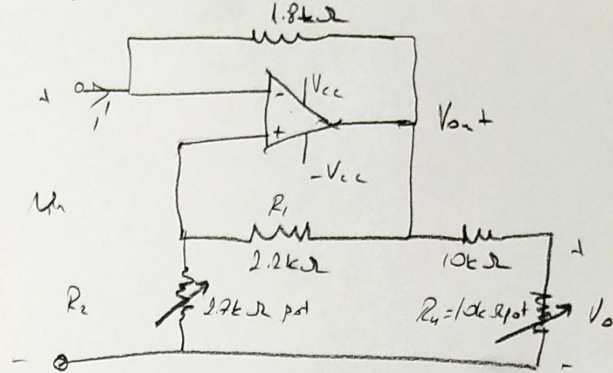 1.8kΩ
+
-
Vcc
+
Vout
-Vcc
R1
2.2kΩ
10kΩ
+
R2
2.7kΩ pot
R4=10kΩpot
Vo
-
-